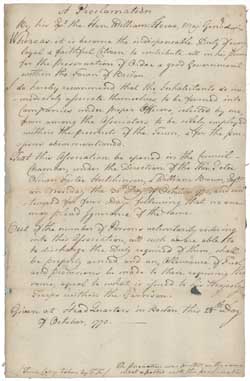 A Proclamation
By his Ex. the Hon. William Howe, Maj. General
Whereas it is become the indispensible Duty of every
loyal & faithful Citizen to contribute all in his Power
for the Preservation of Order & good Government
within the Town of Boston
do hereby recommend that the Inhabitants do im-
mediately associate themselves to be formed into
Companies under proper Officers, selected by me,
from among the Associators to be solely employed
within the precincts of the Town, & for the pur-
poses abovementioned.
That this Association be opened in the Council-
Chamber, under the Direction of the Hon. Peter
Oliver, Foster Hutchinson, & William Brown, Esqrs
on Monday the 30th Day of October and con-
tinued for four Days following that no one
may plead Ignorance of the same.
Out of the number of Persons voluntarily entering
into this Association, all such as are able to
to discharge the Duty required of them shall
be properly armed and an Allowance of Fuel
and provisions be made to those requiring the
same, equal to what is issued to his Majesty's
Troops within the Garrison.
Given at Head Quarters in Boston this 28th day
of October, 1775.